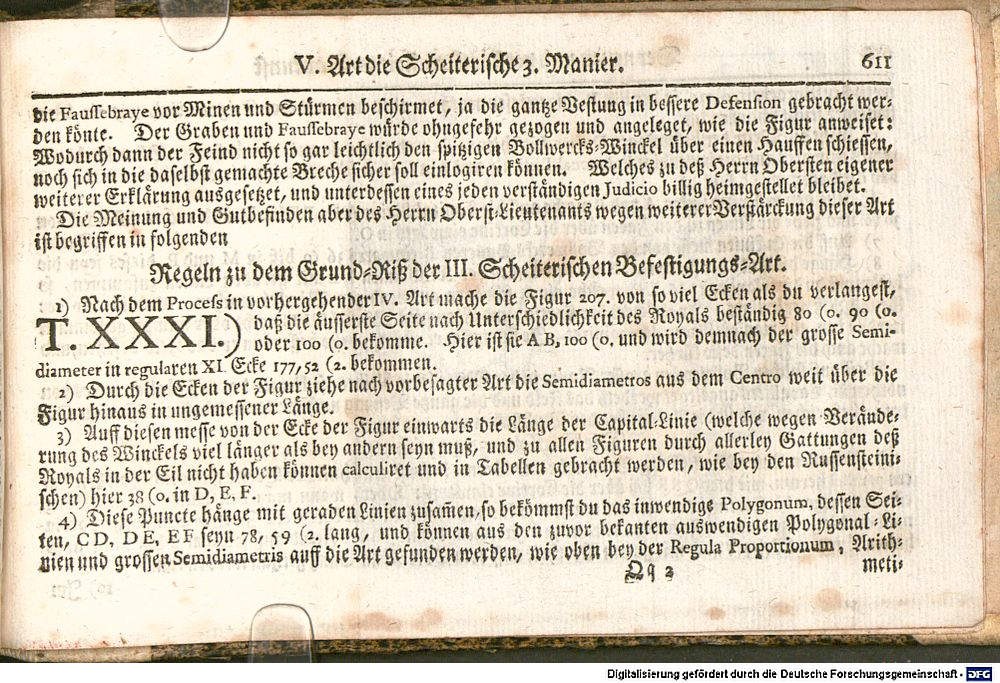 V. Art die Scheiterische 3. Manier. 611
die Faussebraye vor Minen und Stürmen beschirmet, ja die gantze Vestung in bessere Defension gebracht wer-
den könte. Der Graben und Faussebraye würde ohngefehr gezogen und angeleget, wie die Figur anweiset:
Wodurch dann der Feind nicht so gar leichtlich den spitzigen Bollwercks-Winckel über einen Hauffen schiessen,
noch sich in die daselbst gemachte Breche sicher soll einlogiren können. Welches zu deß Herrn Obersten eigener
weiterer Erklärung ausgesetzet, und unterdessen eines jeden verständigen Judicio billig heimgestellet bleibet.
Die Meinung und Gutbefinden aber des Herrn Oberst-Lieutenants wegen weiterer Verstärckung dieser Art
ist begriffen in folgenden
Regeln zu dem Grund-Riß der III. Scheiterischen Befestigungs-Art.
1) Nach dem Process in vorhergehender IV. Art mache die Figur 207. von so viel Ecken als du verlangest,
T. XXXI.) daß die äusserste Seite nach Unterschiedlichkeit des Royals beständig 80 (0. 90 (0.
oder 100 (0. bekomme. Hier ist sie A B, 100 (0. und wird demnach der grosse Semi-
diameter in regularen XI. Ecke 177, 52 (2. bekommen.
2) Durch die Ecken der Figur ziehe nach vorbesagter Art die Semidiametros aus dem Centro weit über die
Figur hinaus in ungemessener Länge.
3) Auff diesen messe von der Ecke der Figur einwarts die Länge der Capital-Linie (welche wegen Verände-
rung des Winckels viel länger als bey andern seyn muß, und zu allen Figuren durch allerley Gattungen deß
Royals in der Eil nicht haben können calculiret und in Tabellen gebracht werden, wie bey den Russensteini-
schen) hier 38 (0. in D, E, F.
4) Diese Puncte hänge mit geraden Linien zusam̃en, so bekömmst du das inwendige Polygonum, dessen Sei-
ten, C D, D E, E F seyn 78, 59 (2. lang, und können aus den zuvor bekanten auswendigen Polygonal-Li-
nien und grossen Semidiametris auff die Art gefunden werden, wie oben bey der Regula Proportionum, Arith-
Qq 2 meti-
Digitalisierung gefördert durch die Deutsche Forschungsgemeinschaft - DFG